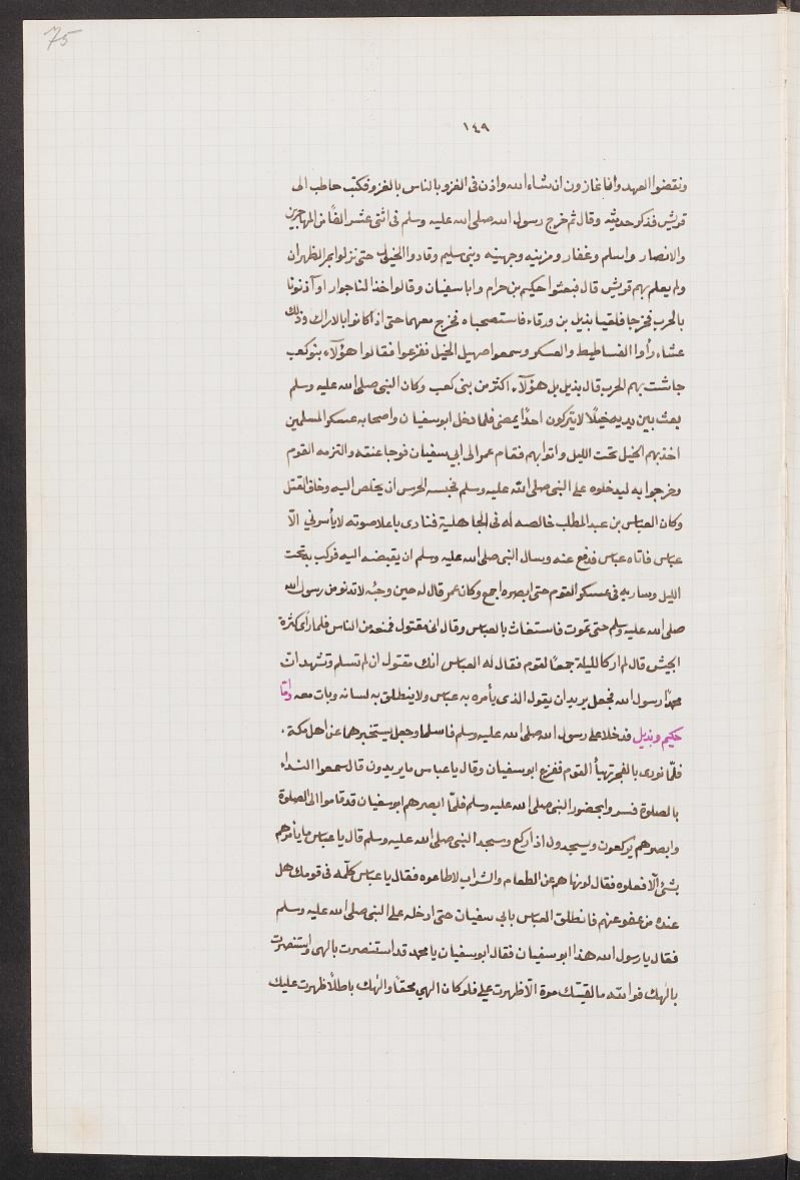 75
١٤٩
ونقضوا العهد وانا غازون ان شاء الله واذن فى الغزو بالناس بالغزو فكتب حاطب الى
قريش فذكر حديثه وقال ثم خرج رسول الله صلى الله عليه وسلم فى اثنى عشر الفًا من المهاجرين
والانصار واسلم وغفار ومزينه وجهينه وبنى سليم وقادوا الخيول حتى نزلوا بمر الظهران
ولم يعلم بهم قريش قال فبعثوا حكيم بن حرام وابا سفيان وقالوا خذا لنا جوار او آذنونا
بالحرب فخرجا فلقيا بذيل بن ورقاء فاستصحباه نخرج معهما حتى اذا كانوا بالاراك وذلك
عشاء رأوا الفساطيط والعسكر وسمعوا صهيل الخيل ففزعوا فقالوا هؤلآء بنو كعب
جاشت بهم الحرب قال بذيل بل هؤلآء اكثر من بنى كعب وكان النبى صلى الله عليه وسلم
بعث بين يديه خيلًا لا يتركون احدًا يمضى فلما دخل ابو سفيان واصحابه عسكر المسلمين
اخذبهم الخيل تحت الليل واتوابهم فقام عمر الى ابي سفيان فوجا عنقه والتزمه القوم
وخرجوا به ليدخلوه على النبى صلى الله عليه وسلم فحبسه الحرس ان يخلص اليه وخاف القتل
وكان العباس بن عبد المطلب خالصه له فى الجاهلية فنادى باعلا صوته لا يأسرني الّا
عباس فاتاه عباس فدفع عنه وسال النبى صلى الله عليه وسلم ان يقبضه اليه فركب به تحت
الليل وسار به فى عسكر القوم حتى ابصره اجمع وكان عمر قال له حين وجئه لا تدنو من رسول الله
صلى الله عليه وسلم حتى تموت فاستغاث بالعباس وقال انى مقتول فمنعه من الناس فلما رأى كثرة
الجيش قال لم ار كالليلة جمعًا لقوم فقال له العباس انك مقتول ان لم تسلم وتشهد ان
محمدًا رسول الله فجعل يريد ان يقول الذى يأمره به عباس ولا ينطلق به لسانه وبات معه وامّا
حكيم وبذيل فدخلا على رسول الله صلى الله عليه وسلم فاسلما وجعل يستخبرهما عن اهل مكة .
فلمّا نودى بالفجر تهيأ القوم ففزع ابو سفيان وقال يا عباس ما يريدون قال سمعوا النداء
بالصلوة فسروا بحضور النبى صلى الله عليه وسلم فلمّا ابصرهم ابو سفيان قد قاموا الى الصلوة
وابصرهم يركعون ويسجدون اذا ركع وسجد النبى صلى الله عليه وسلم قال يا عباس ما يأمرهم
بشئ الّا فعلوه فقال لو نهاهم عن الطعام والشراب لاطاعوه فقال يا عباس كلّمه فى قومك هل
عنده من عفو عنهم فانطلق العباس بابى سفيان حتى ادخله على النبى صلى الله عليه وسلم
فقال يا رسول الله هذا ابو سفيان فقال ابو سفيان يا محمد قد استنصرت بالهى واستنصرت
بالهك فوالله ما لقيتك مرة الّا ظهرت علي فلو كان الهي محقًا والهك باطلًا ظهرت عليك